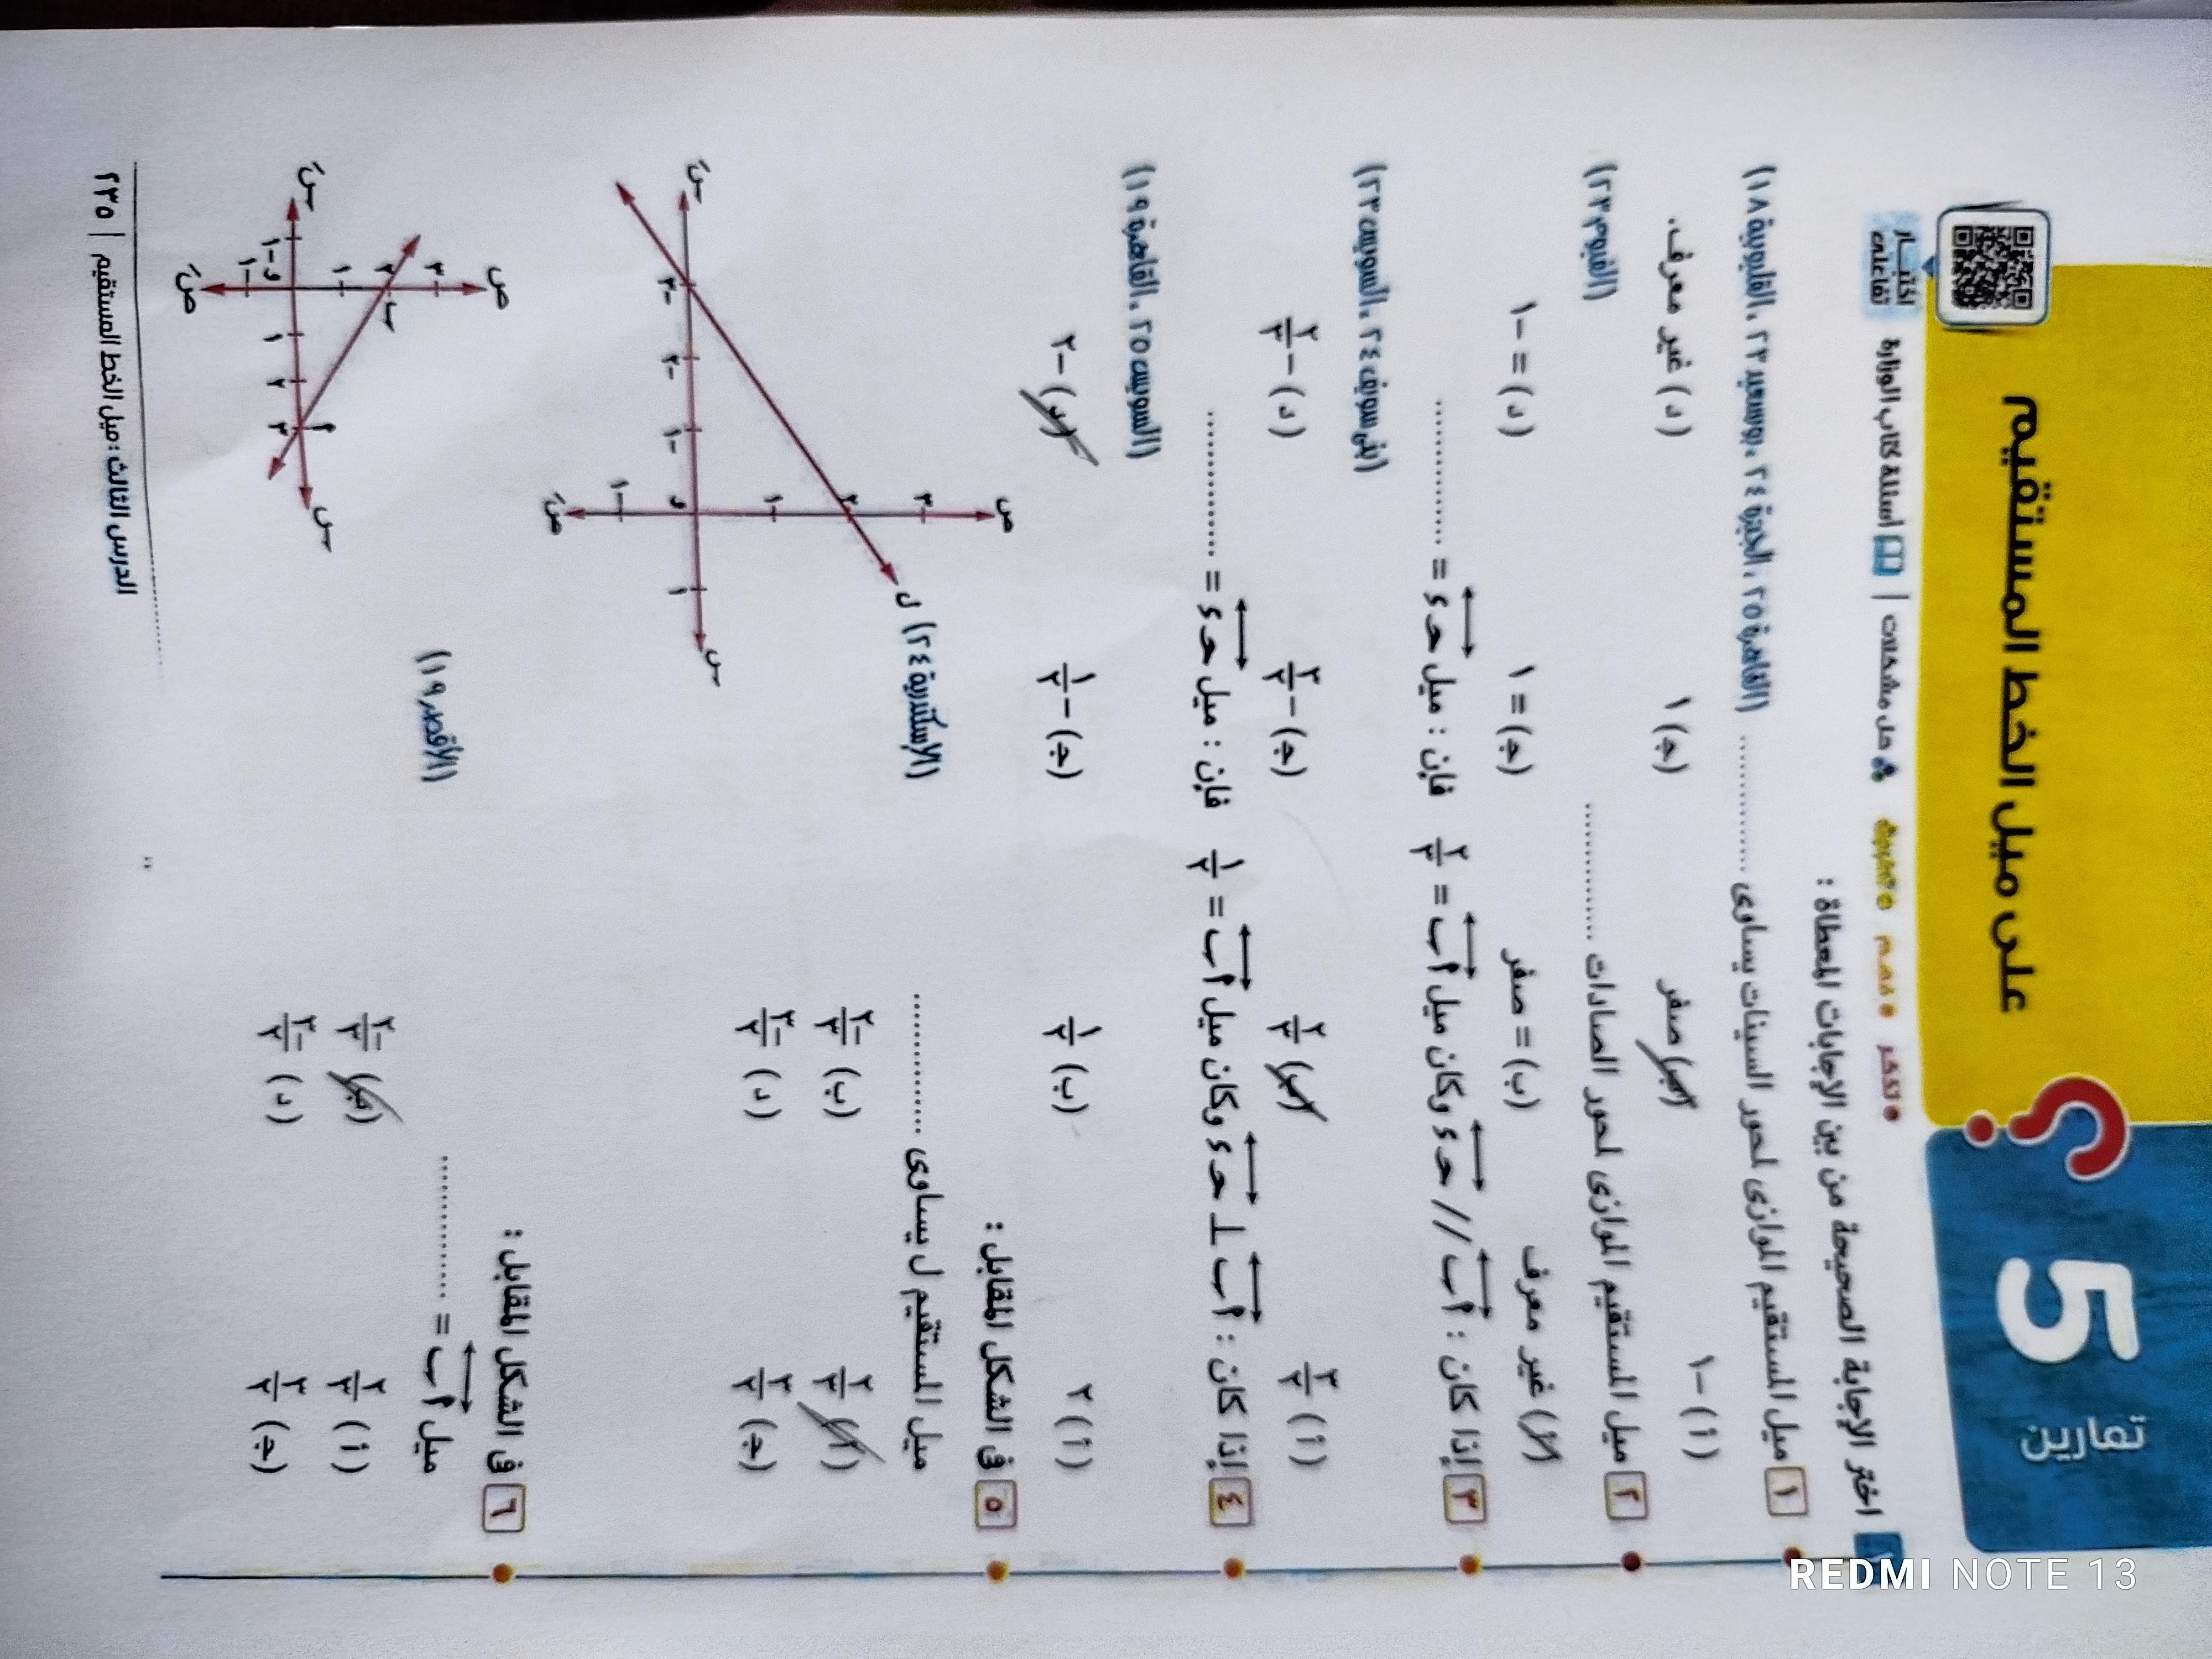 تمارين 5 ؟ على ميل الخط المستقيم
• تذكر • فهم • تطبيق حل مشكلات | أسئلة كتاب الوزارة
اختبـــار تفاعلى
اختر الإجابة الصحيحة من بين الإجابات المعطاة :
١ ميل المستقيم الموازى لمحور السينات يساوى ............ (القاهرة ٢٥، الجيزة ٢٤، بورسعيد ٢٣، القليوبية ١٨)
(أ) -١ (ب) صفر (ج) ١ (د) غير معرف.
٢ ميل المستقيم الموازى لمحور الصادات ............ (الفيوم ٢٣)
(أ) غير معرف (ب) = صفر (ج) = ١ (د) = -١
٣ إذا كان : أب // حـ ء وكان ميل أب = ٢/٣ فإن : ميل حـ ء = ............ (بنى سويف ٢٤، السويس ٢٣)
(أ) ٣/٢ (ب) ٢/٣ (ج) -٣/٢ (د) -٢/٣
٤ إذا كان : أب ⊥ حـ ء وكان ميل أب = ١/٢ فإن : ميل حـ ء = ............ (السويس ٢٥، القاهرة ١٩)
(أ) ٢ (ب) ١/٢ (ج) -١/٢ (د) -٢
٥ فى الشكل المقابل :
ميل المستقيم ل يساوى ............ (الإسكندرية ٢٤)
(أ) ٢/٣ (ب) -٢/٣
(ج) ٣/٢ (د) -٣/٢
ص
ل
٣
٢
١
سَ -٣ -٢ -١ و ١ س
-١
صَ
٦ فى الشكل المقابل :
ميل أب = ............ (الأقصر ١٩)
(أ) ٢/٣ (ب) -٢/٣
(ج) ٣/٢ (د) -٣/٢
ص
٣
٢ ب
١
سَ -١ و ١ ٢ ٣ أ س
-١
صَ
الدرس الثالث : ميل الخط المستقيم | ٢٣٥
REDMI NOTE 13